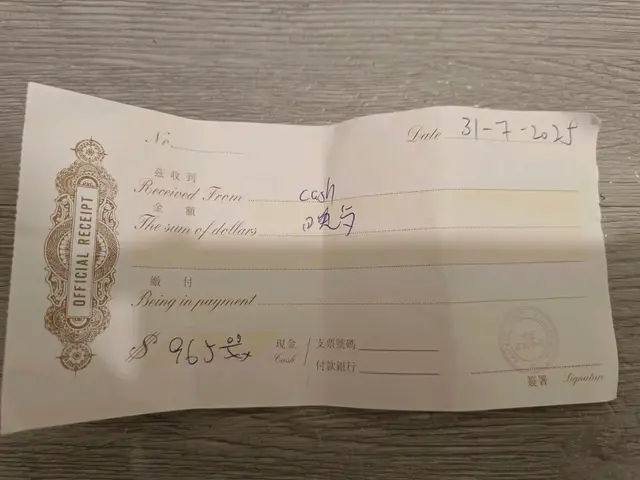 No.
Date 31-7-2025
OFFICIAL RECEIPT
茲收到
Received From cash
金額
The sum of dollars 晚
繳付
Being in payment
$ 965
現金
Cash
支票號碼
付款銀行
簽署 Signature